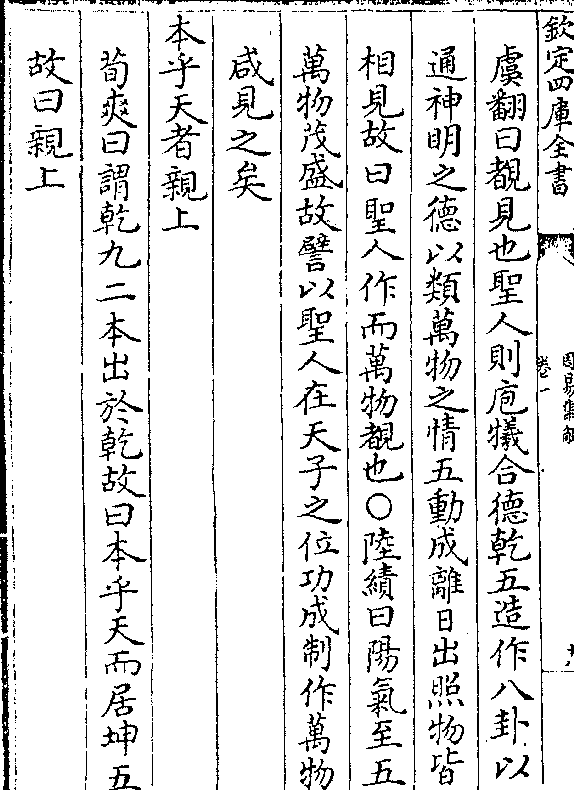 欽定四庫全書
周易集解
卷一
十八
虞翻曰覩見也聖人則庖犧合德乾五造作八卦以
通神明之德以類萬物之情五動成離日出照物皆
相見故曰聖人作而萬物覩也○陸績曰陽氣至五
萬物茂盛故譬以聖人在天子之位功成制作萬物
咸見之矣
本乎天者親上
荀爽曰謂乾九二本出於乾故曰本乎天而居坤五
故曰親上